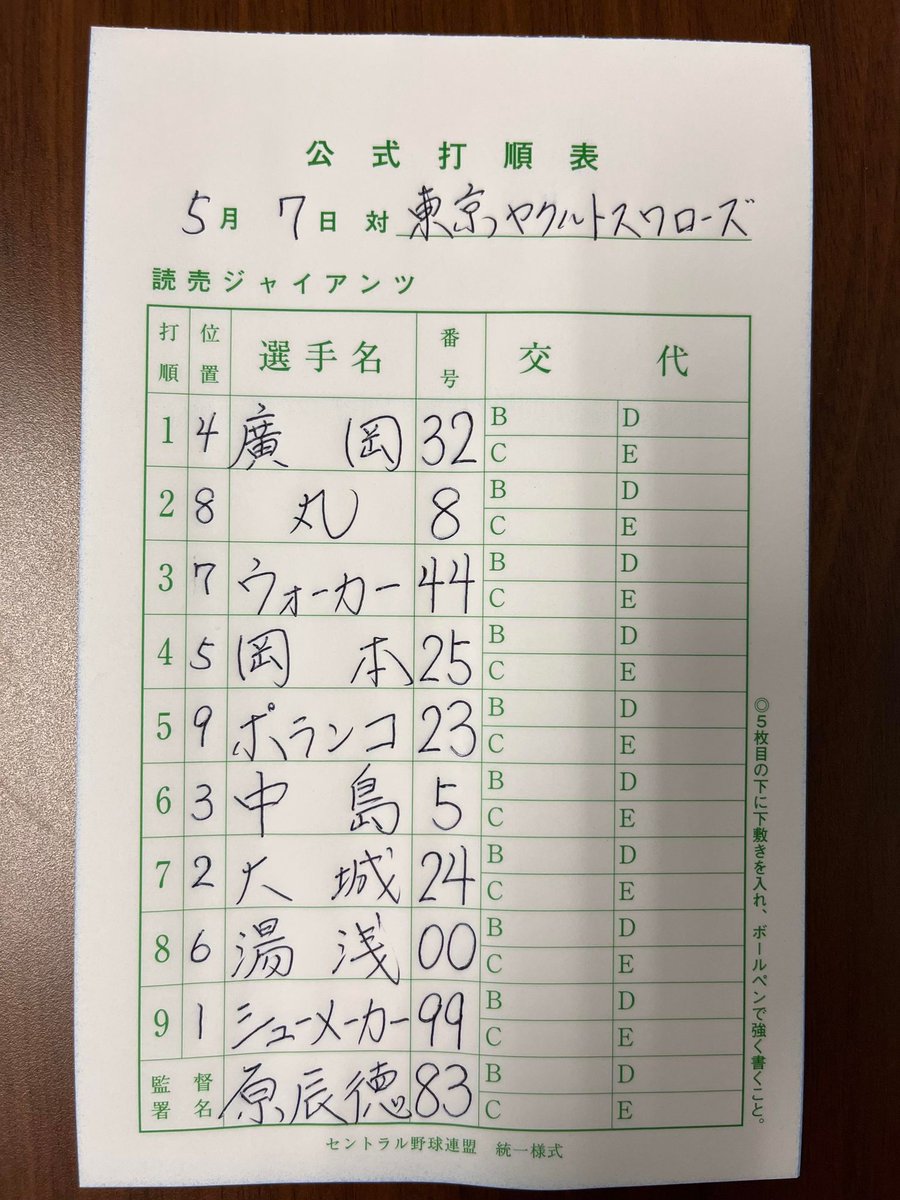 公式打順表
5月 7日 対 東京ヤクルトスワローズ
読売ジャイアンツ
打順 位置 選手名 番号 交代
1 4 廣岡 32 B D C E
2 8 丸 8 B D C E
3 7 ウォーカー 44 B D C E
4 5 岡本 25 B D C E
5 9 ポランコ 23 B D C E
6 3 中島 5 B D C E
7 2 大城 24 B D C E
8 6 湯浅 00 B D C E
9 1 シューメーカー 99 B D C E
監督署名 原辰徳 83 B D C E
セントラル野球連盟 統一様式
◎5枚目の下に下敷きを入れ、ボールペンで強く書くこと。